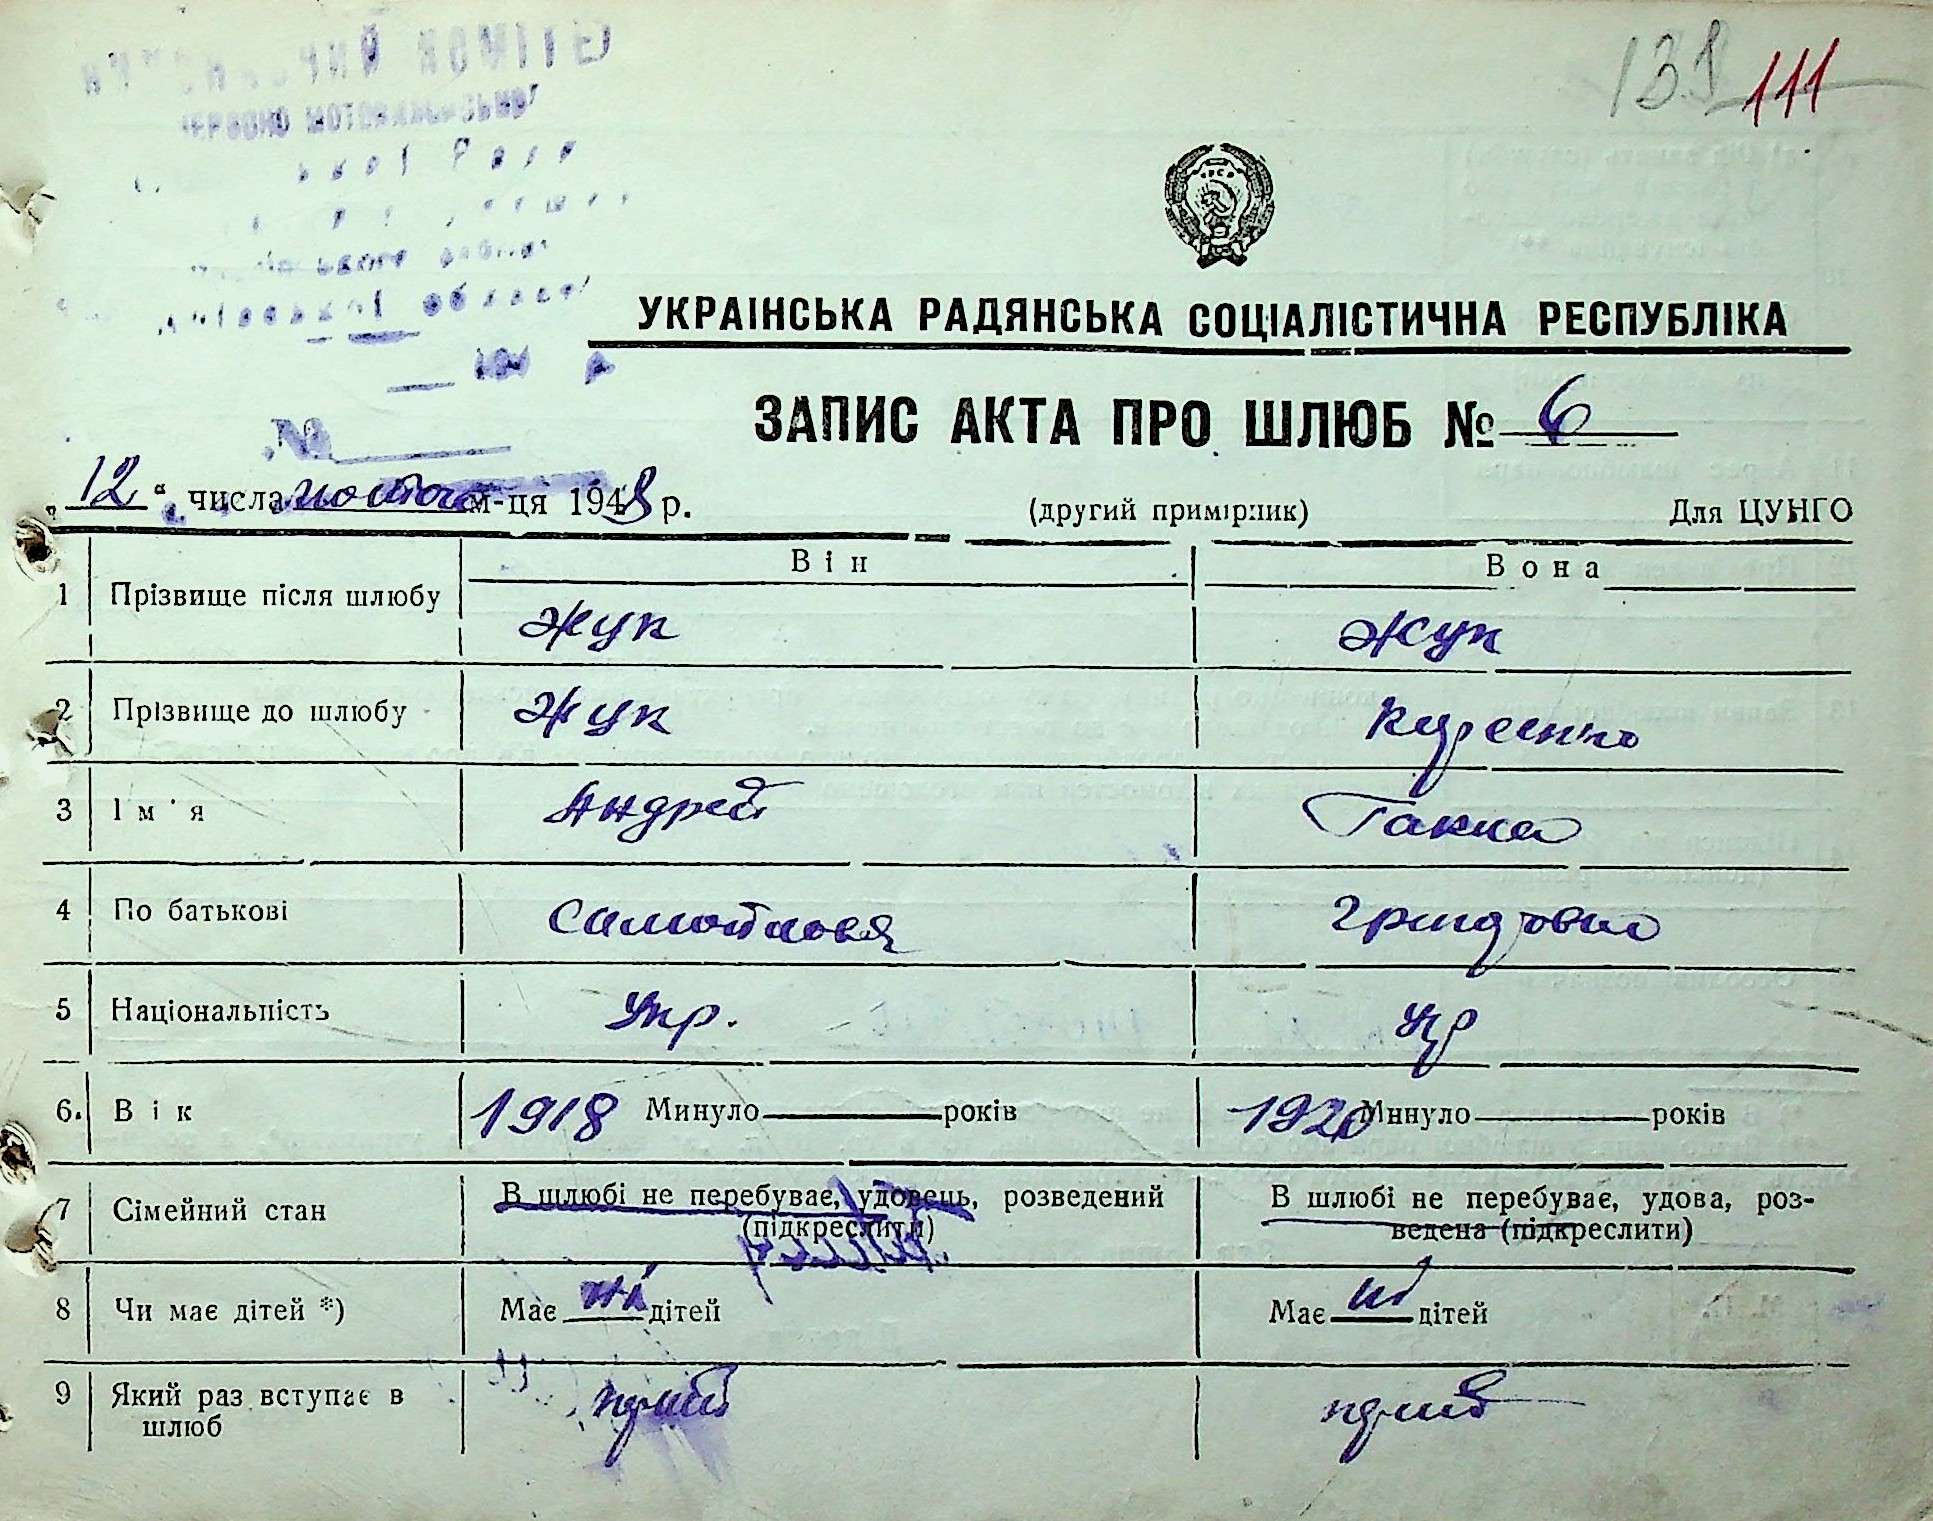 139 111
УКРАЇНСЬКА РАДЯНСЬКА СОЦІАЛІСТИЧНА РЕСПУБЛІКА
ЗАПИС АКТА ПРО ШЛЮБ № 6
№
„12“ числа м-ця 1948 р. (другий примірник) Для ЦУНГО
Він Вона
1 Прізвище після шлюбу Жук Жук
2 Прізвище до шлюбу Жук Куреенко
3 Ім'я Андрей Ганна
4 По батькові Самойлович
5 Національність Укр. Укр
6. Вік 1918 Минуло років 1920 Минуло років
7 Сімейний стан В шлюбі не перебуває, удовець, розведений (підкреслити) В шлюбі не перебуває, удова, роз-
ведена (підкреслити)
8 Чи має дітей *) Має ні дітей Має ні дітей
9 Який раз вступає в
шлюб перший перший